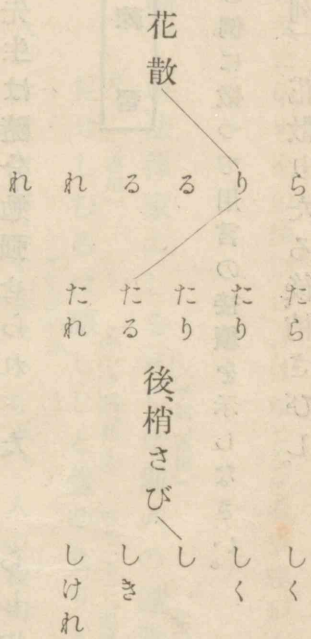 花散
ら
り
る
る
れ
れ
たら
たり
たり
たる
たれ
後、梢さび
しく
しく
し
しき
しけれ